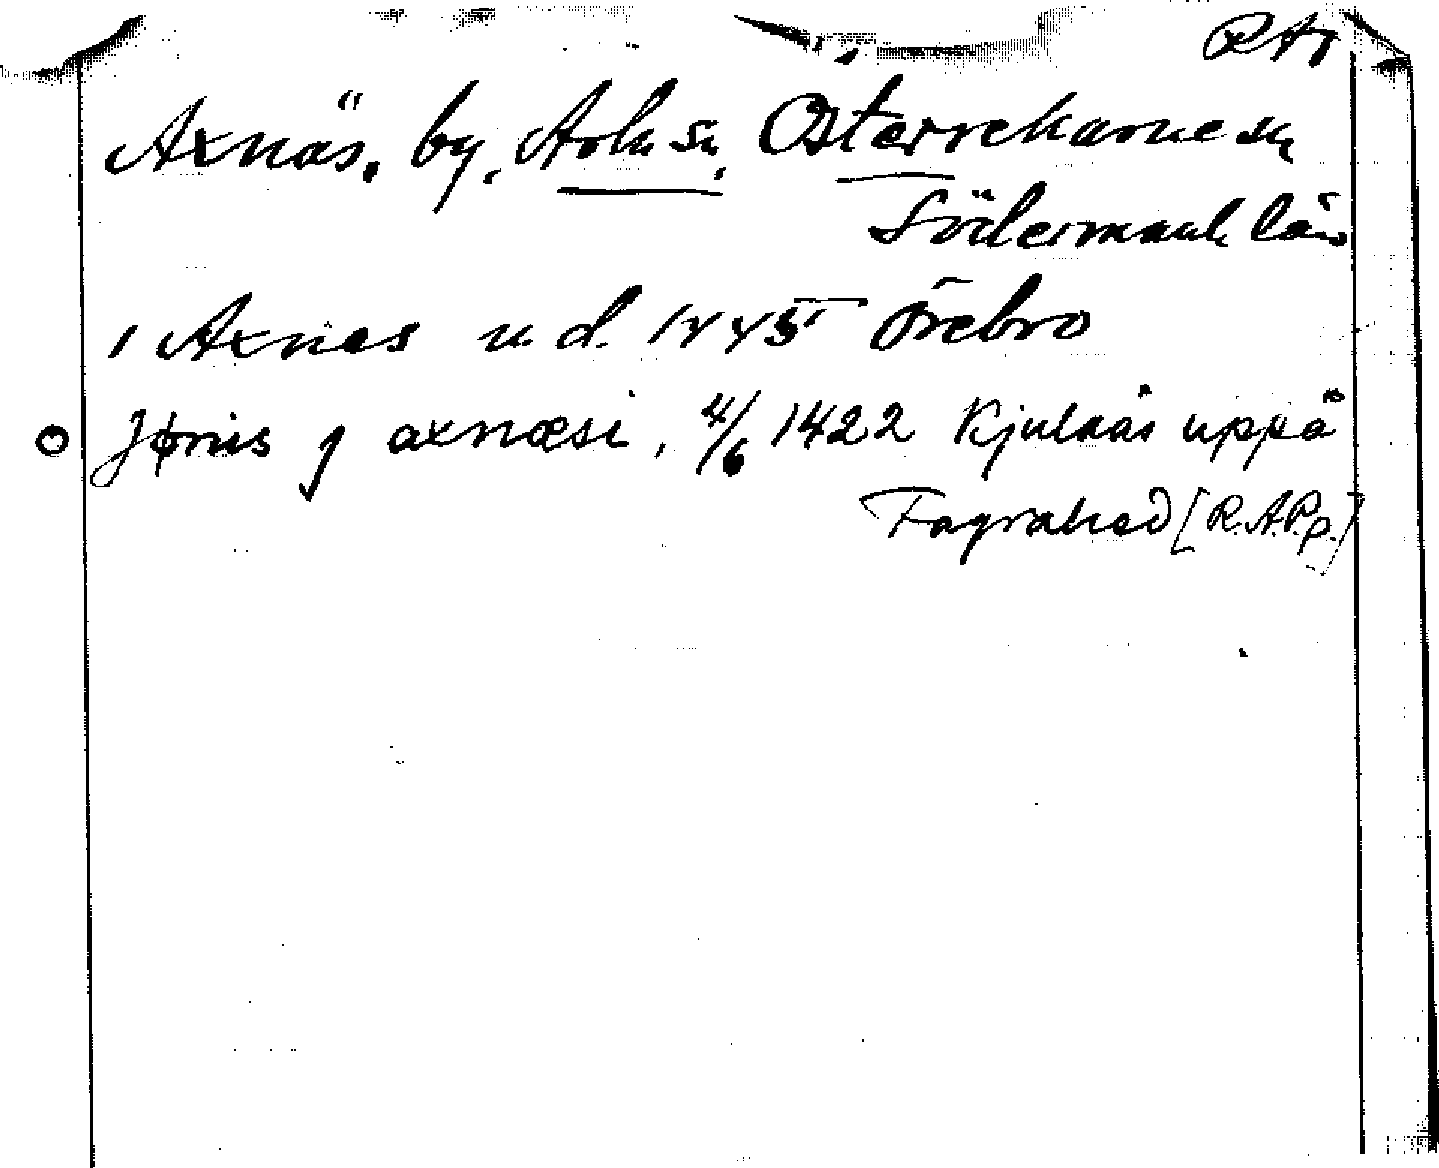 RA
Axnäs, by, Ärla sn, Österrekarne
Södermanl. län
i Axnes u.d. 1445 Örebro
Jønis j axnæsi, 4/6 1422 Kjulaås uppå
Fagrahed [R.A.Pp.]